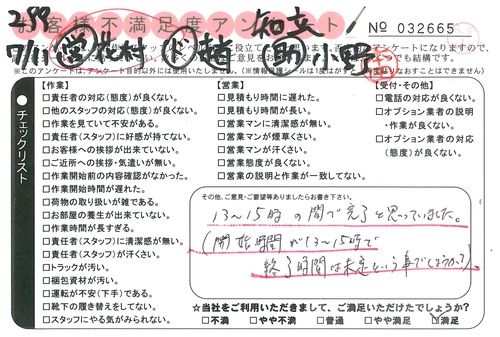 299 知立
お客様不満足度アンケート
№ 032665
7/1 営 北村 ド 趙 助 小野
※このアンケートは、アンケート目的以外には使用いたしません。
チェックリスト
【作業】
□責任者の対応(態度)が良くない。
□他のスタッフの対応(態度)が良くない。
□作業を見ていて不安がある。
□責任者(スタッフ)に好感が持てない。
□お客様への挨拶が出来ていない。
□ご近所への挨拶・気遣いが無い。
□作業開始前の内容確認がなかった。
□作業開始時間が遅れた。
□荷物の取り扱いが雑である。
□お部屋の養生が出来ていない。
□作業時間が長すぎる。
□責任者(スタッフ)に清潔感が無い。
□責任者(スタッフ)が汗くさい。
□トラックが汚い。
□梱包資材が汚い。
□運転が不安(下手)である。
□靴下の履き替えをしてない。
□スタッフにやる気がみられない。
【営業】
□見積もり時間に遅れた。
□見積もり時間が長い。
□営業マンに清潔感が無い。
□営業マンが煙草くさい。
□営業マンが汗くさい。
□営業態度が良くない。
□営業の説明と作業が一致してない。
【受付・その他】
□電話の対応が良くない。
□オプション業者の説明
・作業が良くない。
□オプション業者の対応
(態度)が良くない。
その他、ご意見・ご要望等ありましたらお書き下さい。
13〜15時の間で完了と思っていました。
(開始時間が13〜15時で
終了時間は未定という事でしょうか?)
☆当社をご利用いただきまして、ご満足いただけたでしょうか?
□不満 □やや不満 □普通 □やや満足 ☑満足